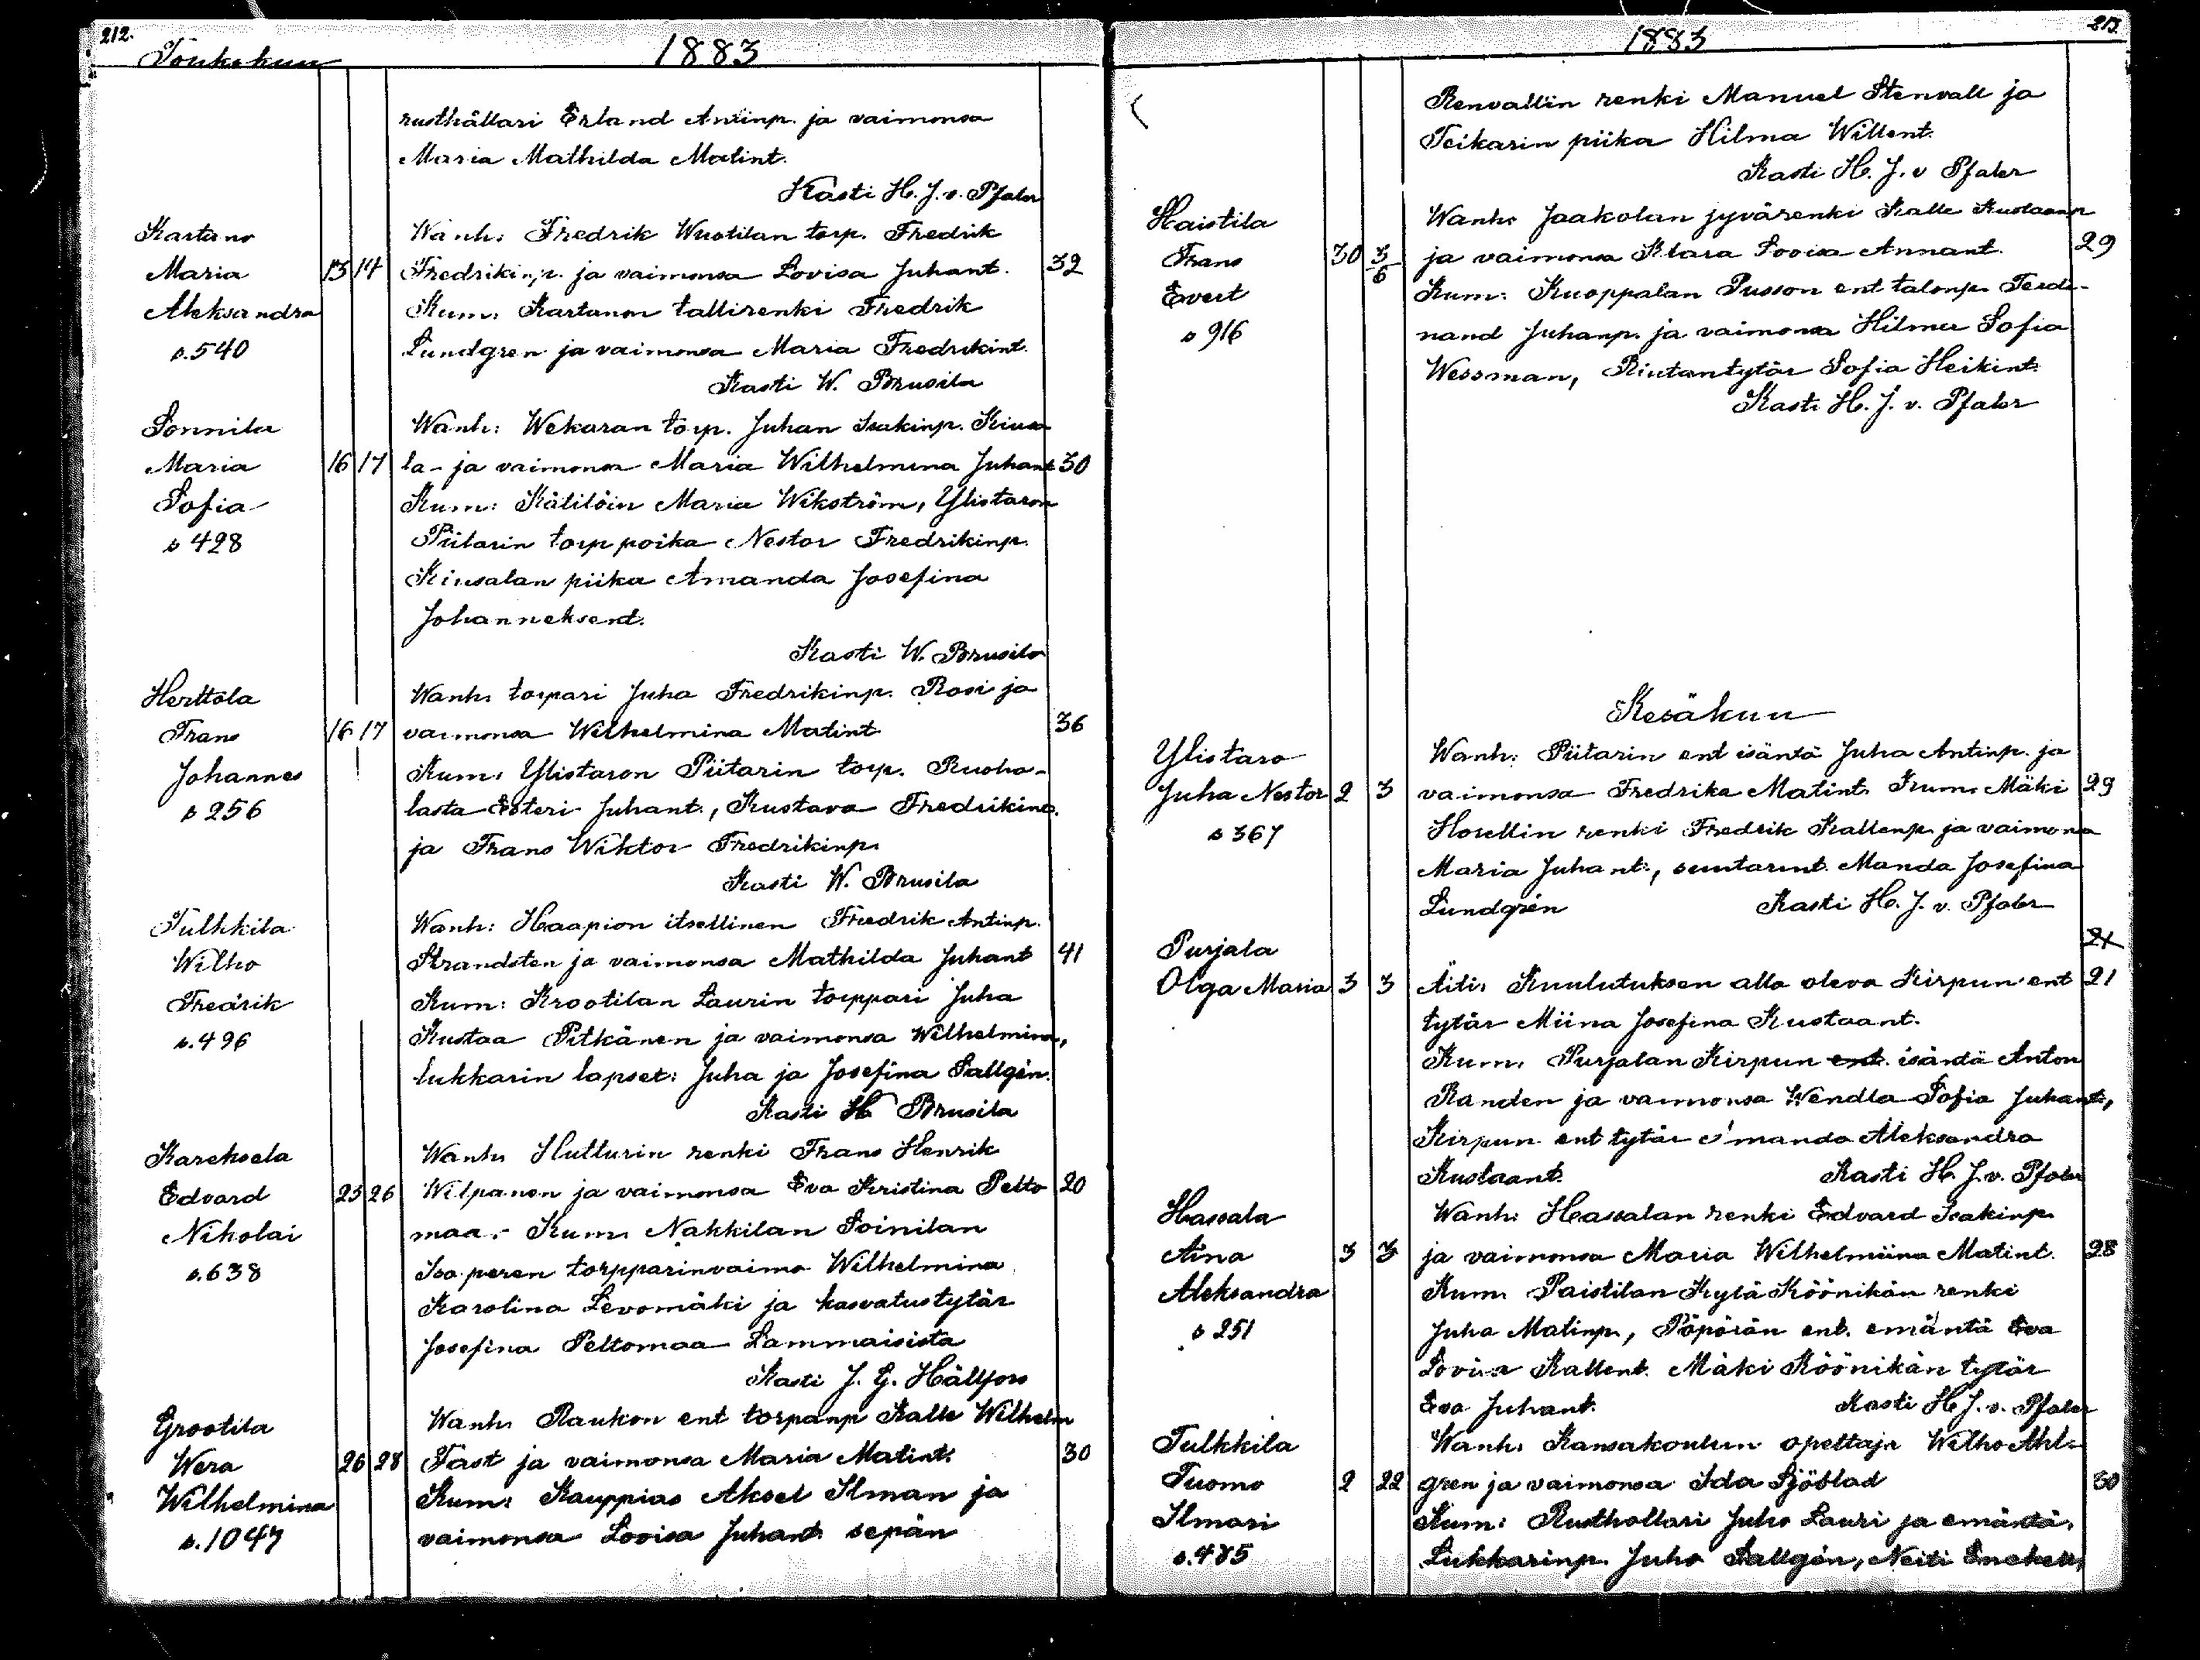 212.
Toukokuu
1883
rusthållari Erland Antinp. ja vaimonsa
Maria Mathilda Matint.
Kasti H. J. v. Pfaler
Kartano
Maria
Aleksandra
s. 540
13 14
Wanh: Fredrik Wuotilan torp. Fredrik
Fredrikinp. ja vaimonsa Lovisa Juhant. 32
Kum: Kartanon tallirenki Fredrik
Lundgren ja vaimonsa Maria Fredrikint.
Kasti W. Brusila
Sonnila
Maria
Sofia
s 428
16 17
Wanh: Wekaran torp. Juhan Isakinp. Kiusa
la- ja vaimonsa Maria Wilhelmina Juhant 30
Kum: Kätilöin Maria Wikström, Ylistaron
Piitarin torp poika Nestor Fredrikinp.
Kiusalan piika Amanda Josefina
Johanneksent.
Kasti W. Brusila
Herttola
Frans
Johannes
s 256
16 17
Wanh: torpari Juha Fredrikinp. Rosi ja
vaimonsa Wilhelmina Matint 36
Kum: Ylistaron Piitarin torp. Ruoho-
lasta Esteri Juhant., Kustava Fredrikint.
ja Frans Wiktor Fredrikinp.
Kasti W. Brusila
Tulkkila
Wilho
Fredrik
s. 496
Wanh: Haapion itsellinen Fredrik Antinp.
Strandsten ja vaimonsa Mathilda Juhant 41
Kum: Krootilan Laurin torppari Juha
Kustaa Pitkänen ja vaimonsa Wilhelmina,
lukkarin lapset: Juha ja Josefina Sallgén.
Kasti H Brusila
Kareksela
Edvard
Nikolai
s. 638
25 26
Wanh: Hutturin renki Frans Henrik
Wilpanen ja vaimonsa Eva Kristina Pelto 20
maa.- Kum: Nakkilan Soinilan
Iso peren torpparinvaimo Wilhelmina
Karolina Levomäki ja kasvatustytär
Josefina Peltomaa Lammaisista
Kasti J. G. Hällfors
Grootila
Wera
Wilhelmina
s. 1047
26 28
Wanh: Raukon ent torpanp Kalle Wilhelm
Fast ja vaimonsa Maria Matint. 30
Kum: Kauppias Aksel Ilman ja
vaimonsa Lovisa Juhant. sepän
213
1883
Renvallin renki Manuel Stenvall ja
Teikarin piika Hilma Willent.
Kasti H. J. v Pfaler
Haistila
Frans
Evert
s 916
30 3/6
Wanh: Jaakolan jyvärenki Kalle Kustaanp
ja vaimonsa Klara Lovisa Annant. 29
Kum: Kuoppalan Pusson ent talonp. Ferdi-
nand Juhanp. ja vaimonsa Hilma Sofia
Wessman, Rintantytär Sofia Heikint.
Kasti H. J. v. Pfaler
Kesäkuu
Ylistaro
Juha Nestor 2 3
s 367
Wanh: Piitarin ent isäntä Juha Antinp. ja
vaimonsa Fredrika Matint. Kum: Mäki 29
Horellin renki Fredrik Kallenp. ja vaimonsa
Maria Juhant., suutarint. Manda Josefina
Lundgrén Kasti H. J. v. Pfaler
21
Purjala
Olga Maria 3 3
Äiti: Kuulutuksen alla oleva Kirpun ent 21
tytär Miina Josefina Kustaant.
Kum: Purjalan Kirpun ent. isäntä Anton
Randen ja vaimonsa Wendla Sofia Juhant.,
Kirpun ent tytär Amanda Aleksandra
Kustaant. Kasti H. J. v. Pfaler
Hassala
Aina
Aleksandra
s 251
3 3
Wanh: Hassalan renki Edvard Isakinp
ja vaimonsa Maria Wilhelmiina Matint. 28
Kum: Paistilan Kylä Köönikän renki
Juha Matinp., Pöpörän ent. emäntä Eva
Lovisa Kallent. Mäki Köönikän tytär
Eva Juhant. Kasti H J. v. Pfaler
Tulkkila
Tuomo
Ilmari
s. 485
2 22
Wanh: Kansakoulun opettaja Wilho Ahl-
gren ja vaimonsa Ida Sjöblad 30
Kum: Rusthollari Juho Lauri ja emäntä,
Lukkarinp. Juho Sallgén, Neiti Enckell,